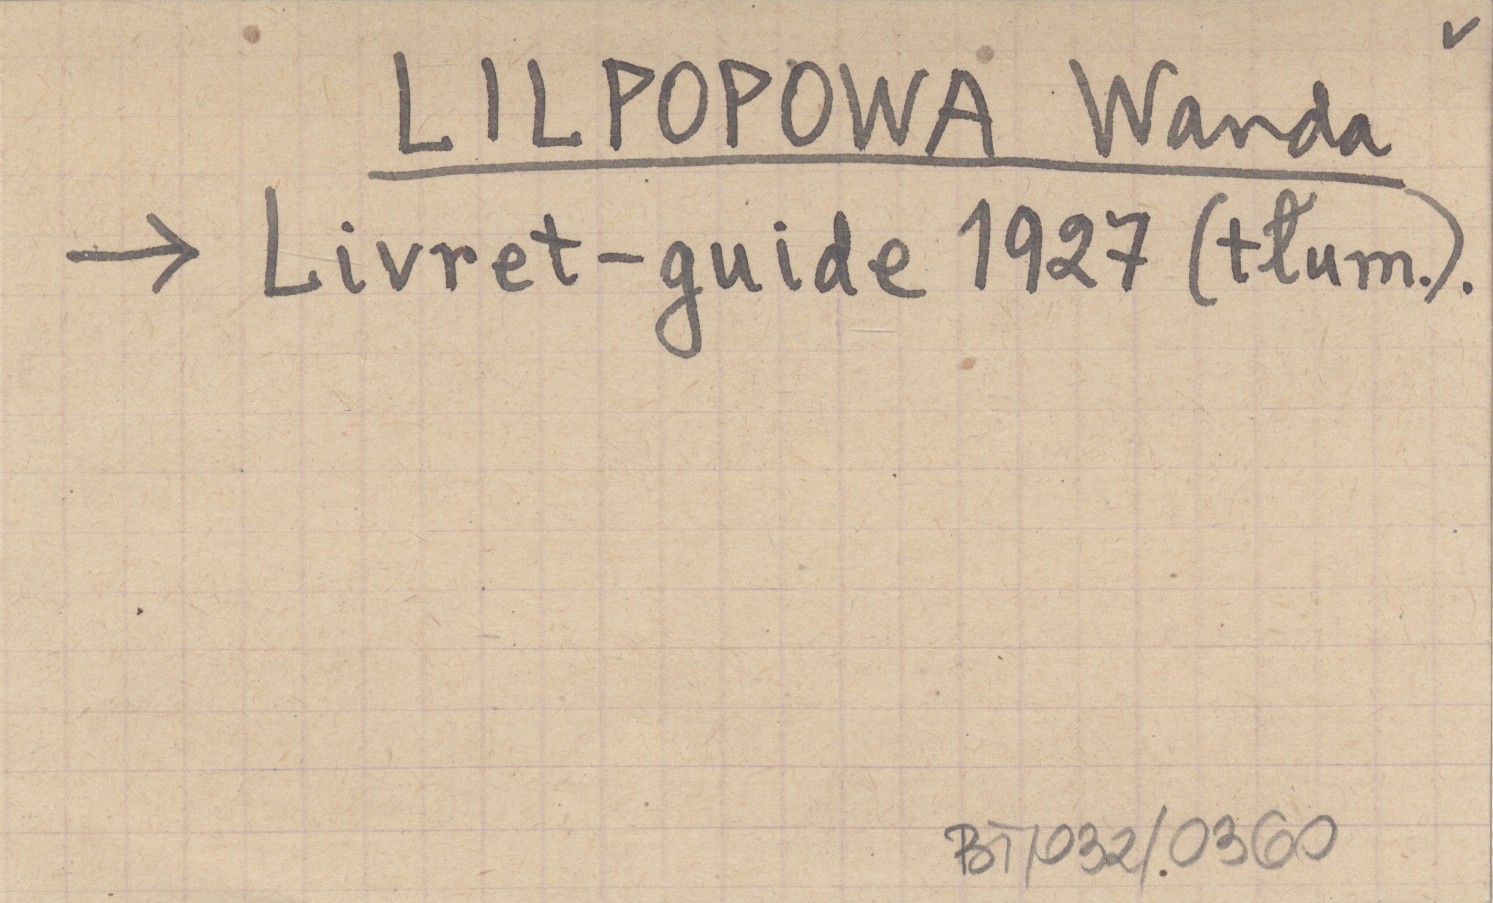 LILPOPOWA Wanda
→ Livret-guide 1927 (tłum.).
BT/032/0360